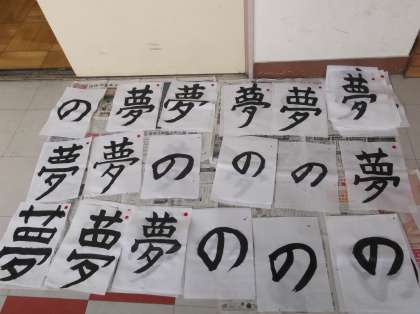 の 夢 夢 夢 夢 夢
夢 夢 の の の 夢
夢 夢 夢 の の の